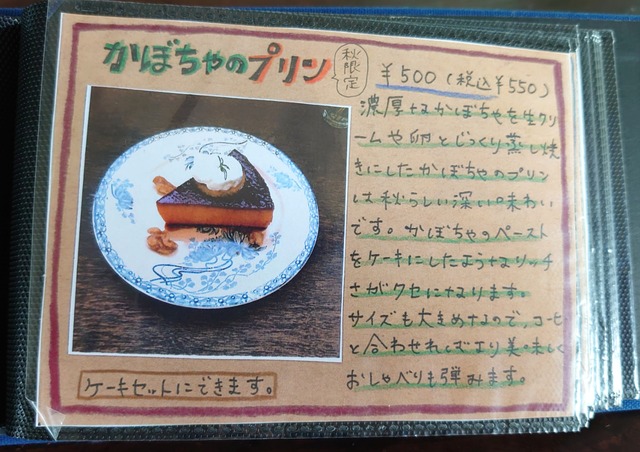 かぼちゃのプリン
秋限定
¥500(税込¥550)
濃厚なかぼちゃを生クリ
ームや卵とじっくり蒸し焼
きにしたかぼちゃのプリン
は秋らしい深い味わい
です。かぼちゃのペースト
をケーキにしたようなリッチ
さがクセになります。
サイズも大きめなので、コーヒー
と合わせればより美味しく
おしゃべりも弾みます。
ケーキセットにできます。